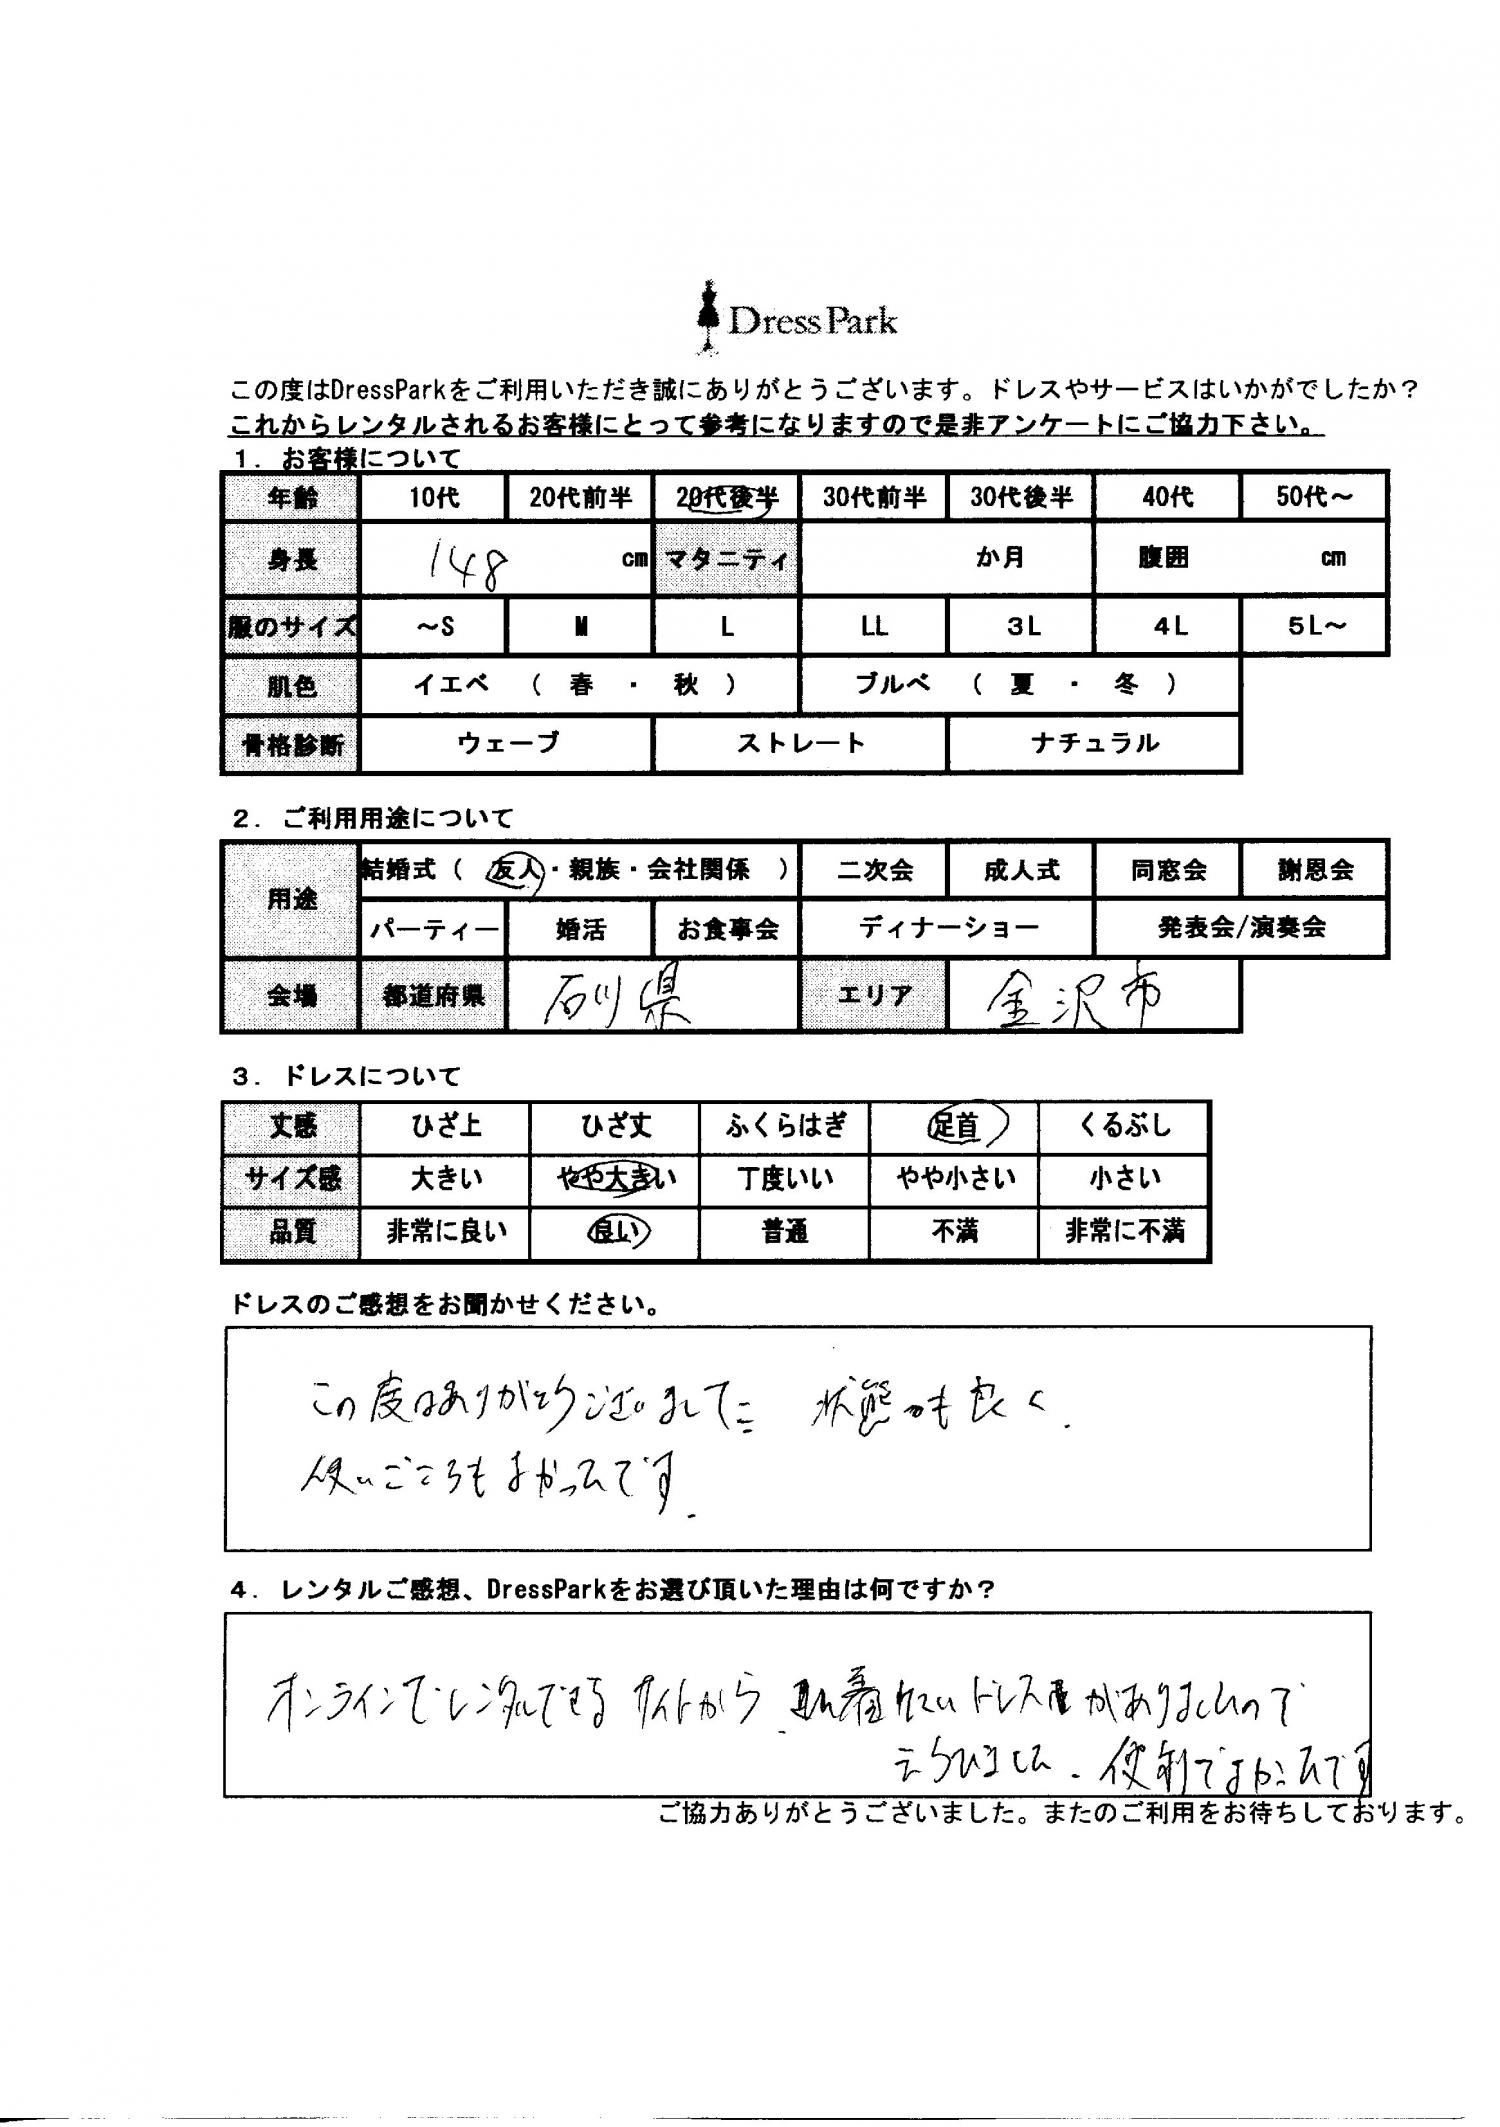 Dress Park
この度はDressParkをご利用いただき誠にありがとうございます。ドレスやサービスはいかがでしたか？
これからレンタルされるお客様にとって参考になりますので是非アンケートにご協力下さい。
1. お客様について
年齢 10代 20代前半 20代後半 30代前半 30代後半 40代 50代～
身長 148 cm マタニティ か月 腹囲 cm
服のサイズ ～S M L LL 3L 4L 5L～
肌色 イエベ （ 春 ・ 秋 ） ブルベ （ 夏 ・ 冬 ）
骨格診断 ウェーブ ストレート ナチュラル
2. ご利用用途について
用途 結婚式（ 友人・親族・会社関係 ） 二次会 成人式 同窓会 謝恩会
パーティー 婚活 お食事会 ディナーショー 発表会/演奏会
会場 都道府県 石川県 エリア 金沢市
3. ドレスについて
丈感 ひざ上 ひざ丈 ふくらはぎ 足首 くるぶし
サイズ感 大きい やや大きい 丁度いい やや小さい 小さい
品質 非常に良い 良い 普通 不満 非常に不満
ドレスのご感想をお聞かせください。
この度はありがとうございました 状態も良く
使いごこちもよかったです.
4. レンタルご感想、DressParkをお選び頂いた理由は何ですか？
オンラインでレンタルできるサイトから 着たいドレスがありましたので
えらびました. 便利でよかったです
ご協力ありがとうございました。またのご利用をお待ちしております。